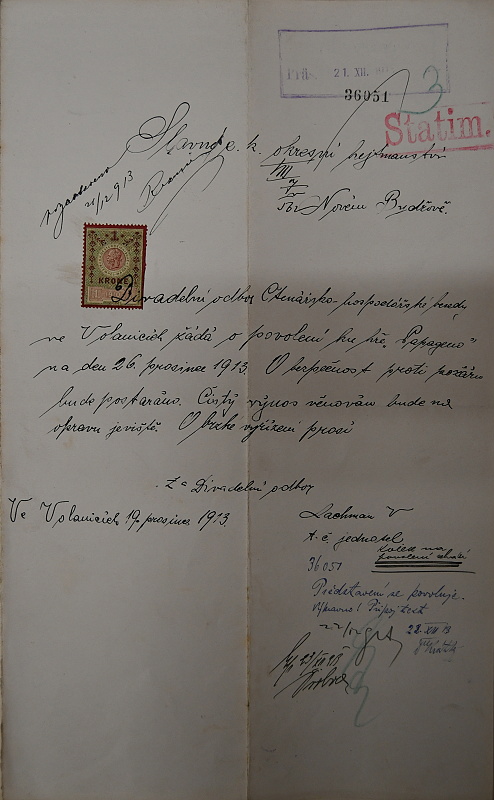 21. XII.
36051
3
Statim.
Slavné c. k. okresní hejtmanství
v Novém Bydžově.
21/12 913
1
KRONE
Divadelní odbor Čtenářsko-hospodářské besedy
ve Volanicích žádá o povolení ku hře „Papageno"
na den 26. prosince 1913. O bezpečnost proti požáru
bude postaráno. Čistý výnos věnován bude na
opravu jeviště. O brzké vyřízení prosí
Za Divadelní odbor
Ve Volanicích 19. prosince 1913.
Lachman V
t. č. jednatel
kolek na
36051
Představení se povoluje.
22. XII 13